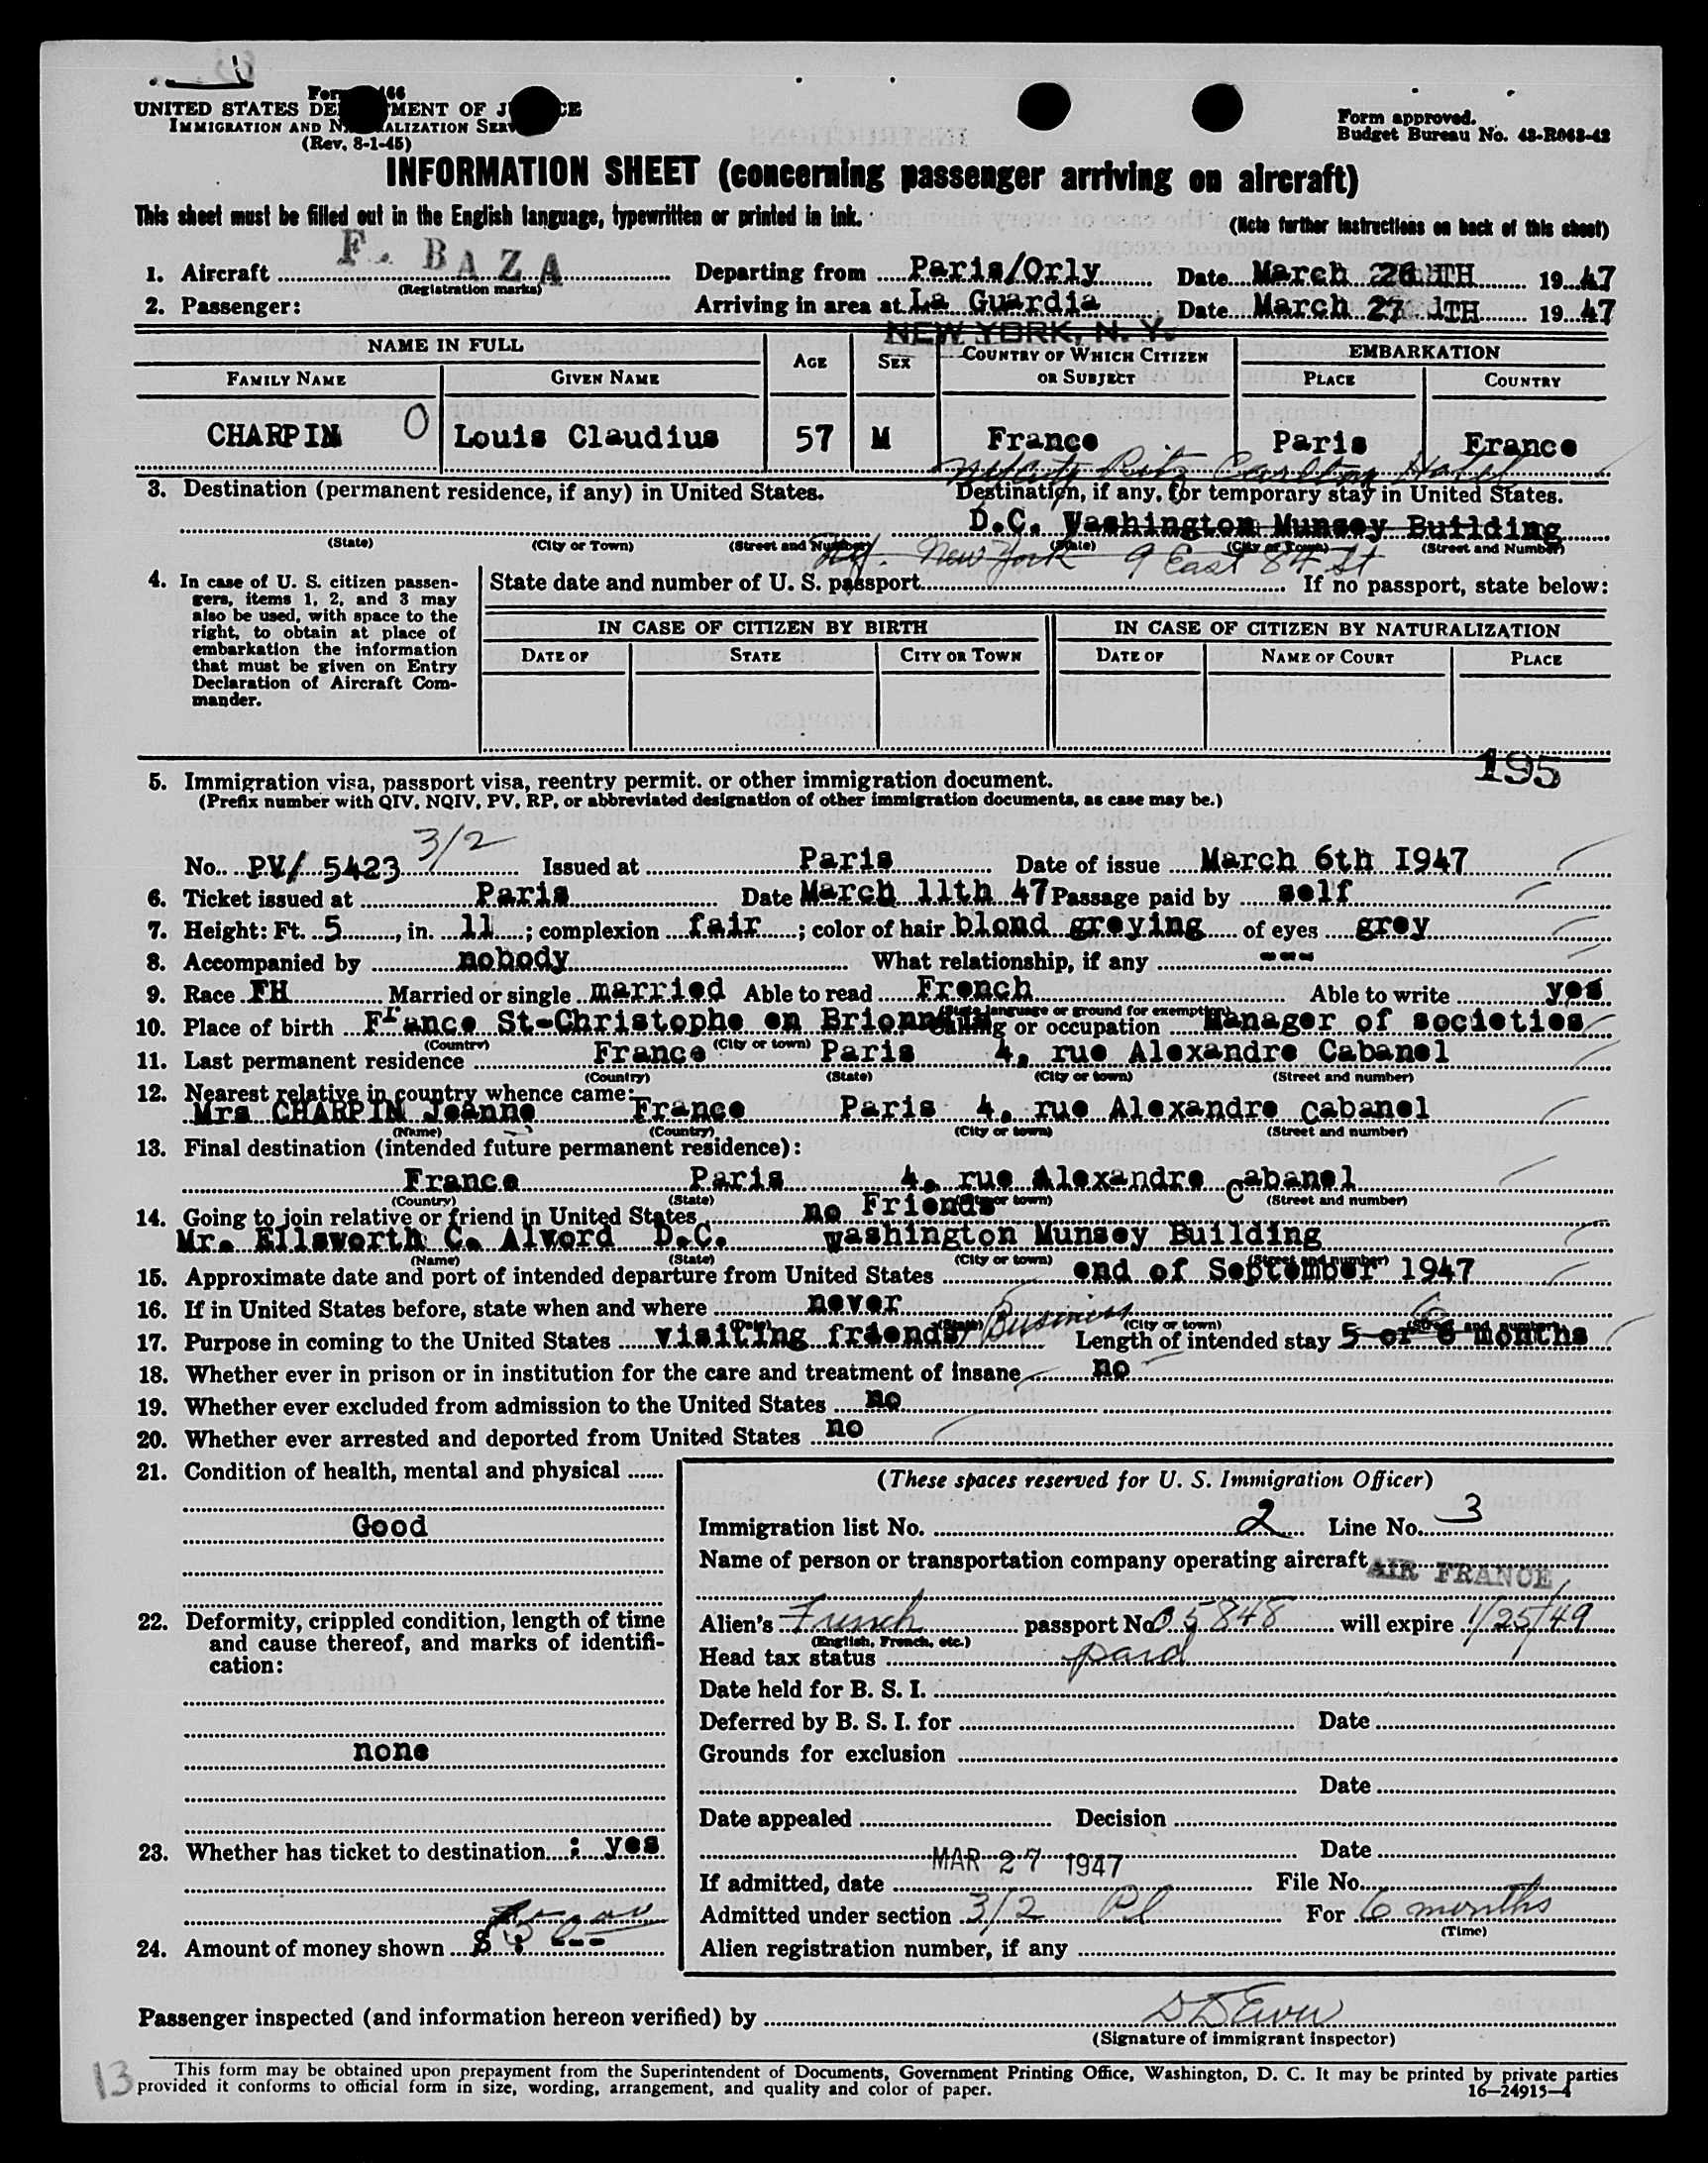 Form 466
UNITED STATES DEPARTMENT OF JUSTICE
IMMIGRATION AND NATURALIZATION SERVICE
(Rev. 8-1-45)
Form approved.
Budget Bureau No. 43-R063-42
INFORMATION SHEET (concerning passenger arriving on aircraft)
This sheet must be filled out in the English language, typewritten or printed in ink.
(Note further instructions on back of this sheet)
1. Aircraft F. BAZA Departing from Paris/Orly Date March 26 TH 1947
(Registration marks)
2. Passenger: Arriving in area at La Guardia Date March 27 TH 1947
NEW YORK, N. Y.
NAME IN FULL AGE SEX COUNTRY OF WHICH CITIZEN OR SUBJECT EMBARKATION
FAMILY NAME GIVEN NAME PLACE COUNTRY
CHARPIN O Louis Claudius 57 M France Paris France
Ritz Carlton Hotel
3. Destination (permanent residence, if any) in United States. Destination, if any, for temporary stay in United States.
D.C. Washington Munsey Building
(State) (City or Town) (Street and Number) (State) (City or Town) (Street and Number)
New York 9 East 84 St
4. In case of U. S. citizen passengers, items 1, 2, and 3 may also be used, with space to the right, to obtain at place of embarkation the information that must be given on Entry Declaration of Aircraft Commander.
State date and number of U. S. passport If no passport, state below:
IN CASE OF CITIZEN BY BIRTH IN CASE OF CITIZEN BY NATURALIZATION
DATE OF STATE CITY OR TOWN DATE OF NAME OF COURT PLACE
195
5. Immigration visa, passport visa, reentry permit. or other immigration document.
(Prefix number with QIV, NQIV, PV, RP, or abbreviated designation of other immigration documents, as case may be.)
No. PV/ 5423 3/2 Issued at Paris Date of issue March 6th 1947
6. Ticket issued at Paris Date March 11th 47 Passage paid by self
7. Height: Ft. 5, in. 11; complexion fair; color of hair blond greying of eyes grey
8. Accompanied by nobody What relationship, if any ---
9. Race FH Married or single married Able to read French Able to write yes
(State language or ground for exemption)
10. Place of birth France St-Christophe en Brionnais Calling or occupation Manager of societies
(Country) (City or town)
11. Last permanent residence France Paris 4, rue Alexandre Cabanel
(Country) (State) (City or town) (Street and number)
12. Nearest relative in country whence came:
Mrs CHARPIN Jeanne France Paris 4, rue Alexandre cabanel
(Name) (Country) (City or town) (Street and number)
13. Final destination (intended future permanent residence):
France Paris 4, rue Alexandre Cabanel
(Country) (State) (City or town) (Street and number)
14. Going to join relative or friend in United States no Friends
Mr. Ellsworth C. Alvord D.C. washington Munsey Building
(Name) (State) (City or town) (Street and number)
15. Approximate date and port of intended departure from United States end of September 1947
16. If in United States before, state when and where never
(Date) (State) (City or town) (Street and number)
17. Purpose in coming to the United States visiting friends/ Business Length of intended stay 5 or 6 months 6
18. Whether ever in prison or in institution for the care and treatment of insane no
19. Whether ever excluded from admission to the United States no
20. Whether ever arrested and deported from United States no
21. Condition of health, mental and physical
Good
22. Deformity, crippled condition, length of time and cause thereof, and marks of identification:
none
23. Whether has ticket to destination : yes
24. Amount of money shown $
(These spaces reserved for U. S. Immigration Officer)
Immigration list No. 2 Line No. 3
Name of person or transportation company operating aircraft AIR FRANCE
Alien's French passport No 05848 will expire 1/25/49
(English, French, etc.)
Head tax status paid
Date held for B. S. I.
Deferred by B. S. I. for Date
Grounds for exclusion
Date
Date appealed Decision
Date
If admitted, date MAR 27 1947 File No.
Admitted under section 3/2 For 6 months
(Time)
Alien registration number, if any
Passenger inspected (and information hereon verified) by
(Signature of immigrant inspector)
13
This form may be obtained upon prepayment from the Superintendent of Documents, Government Printing Office, Washington, D. C. It may be printed by private parties
provided it conforms to official form in size, wording, arrangement, and quality and color of paper.
16—24915-4